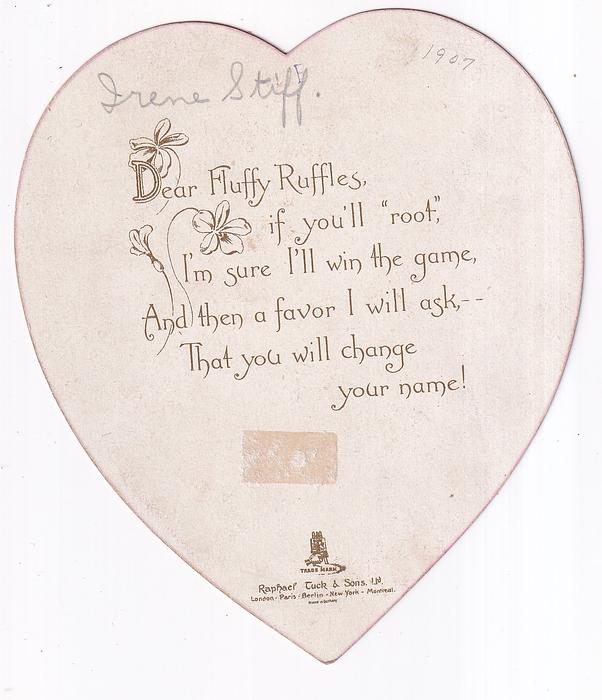 Irene Stiff.
1907
Dear Fluffy Ruffles,
if you'll "root",
I'm sure I'll win the game,
And then a favor I will ask,--
That you will change
your name!
TRADE MARK
Raphael Tuck & Sons, Ltd.
London - Paris - Berlin - New York - Montreal.